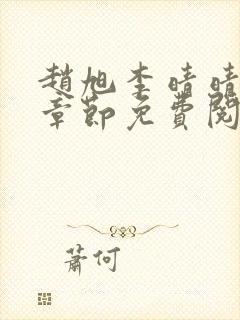 趙旭李晴晴
章節免費閱
蕭何